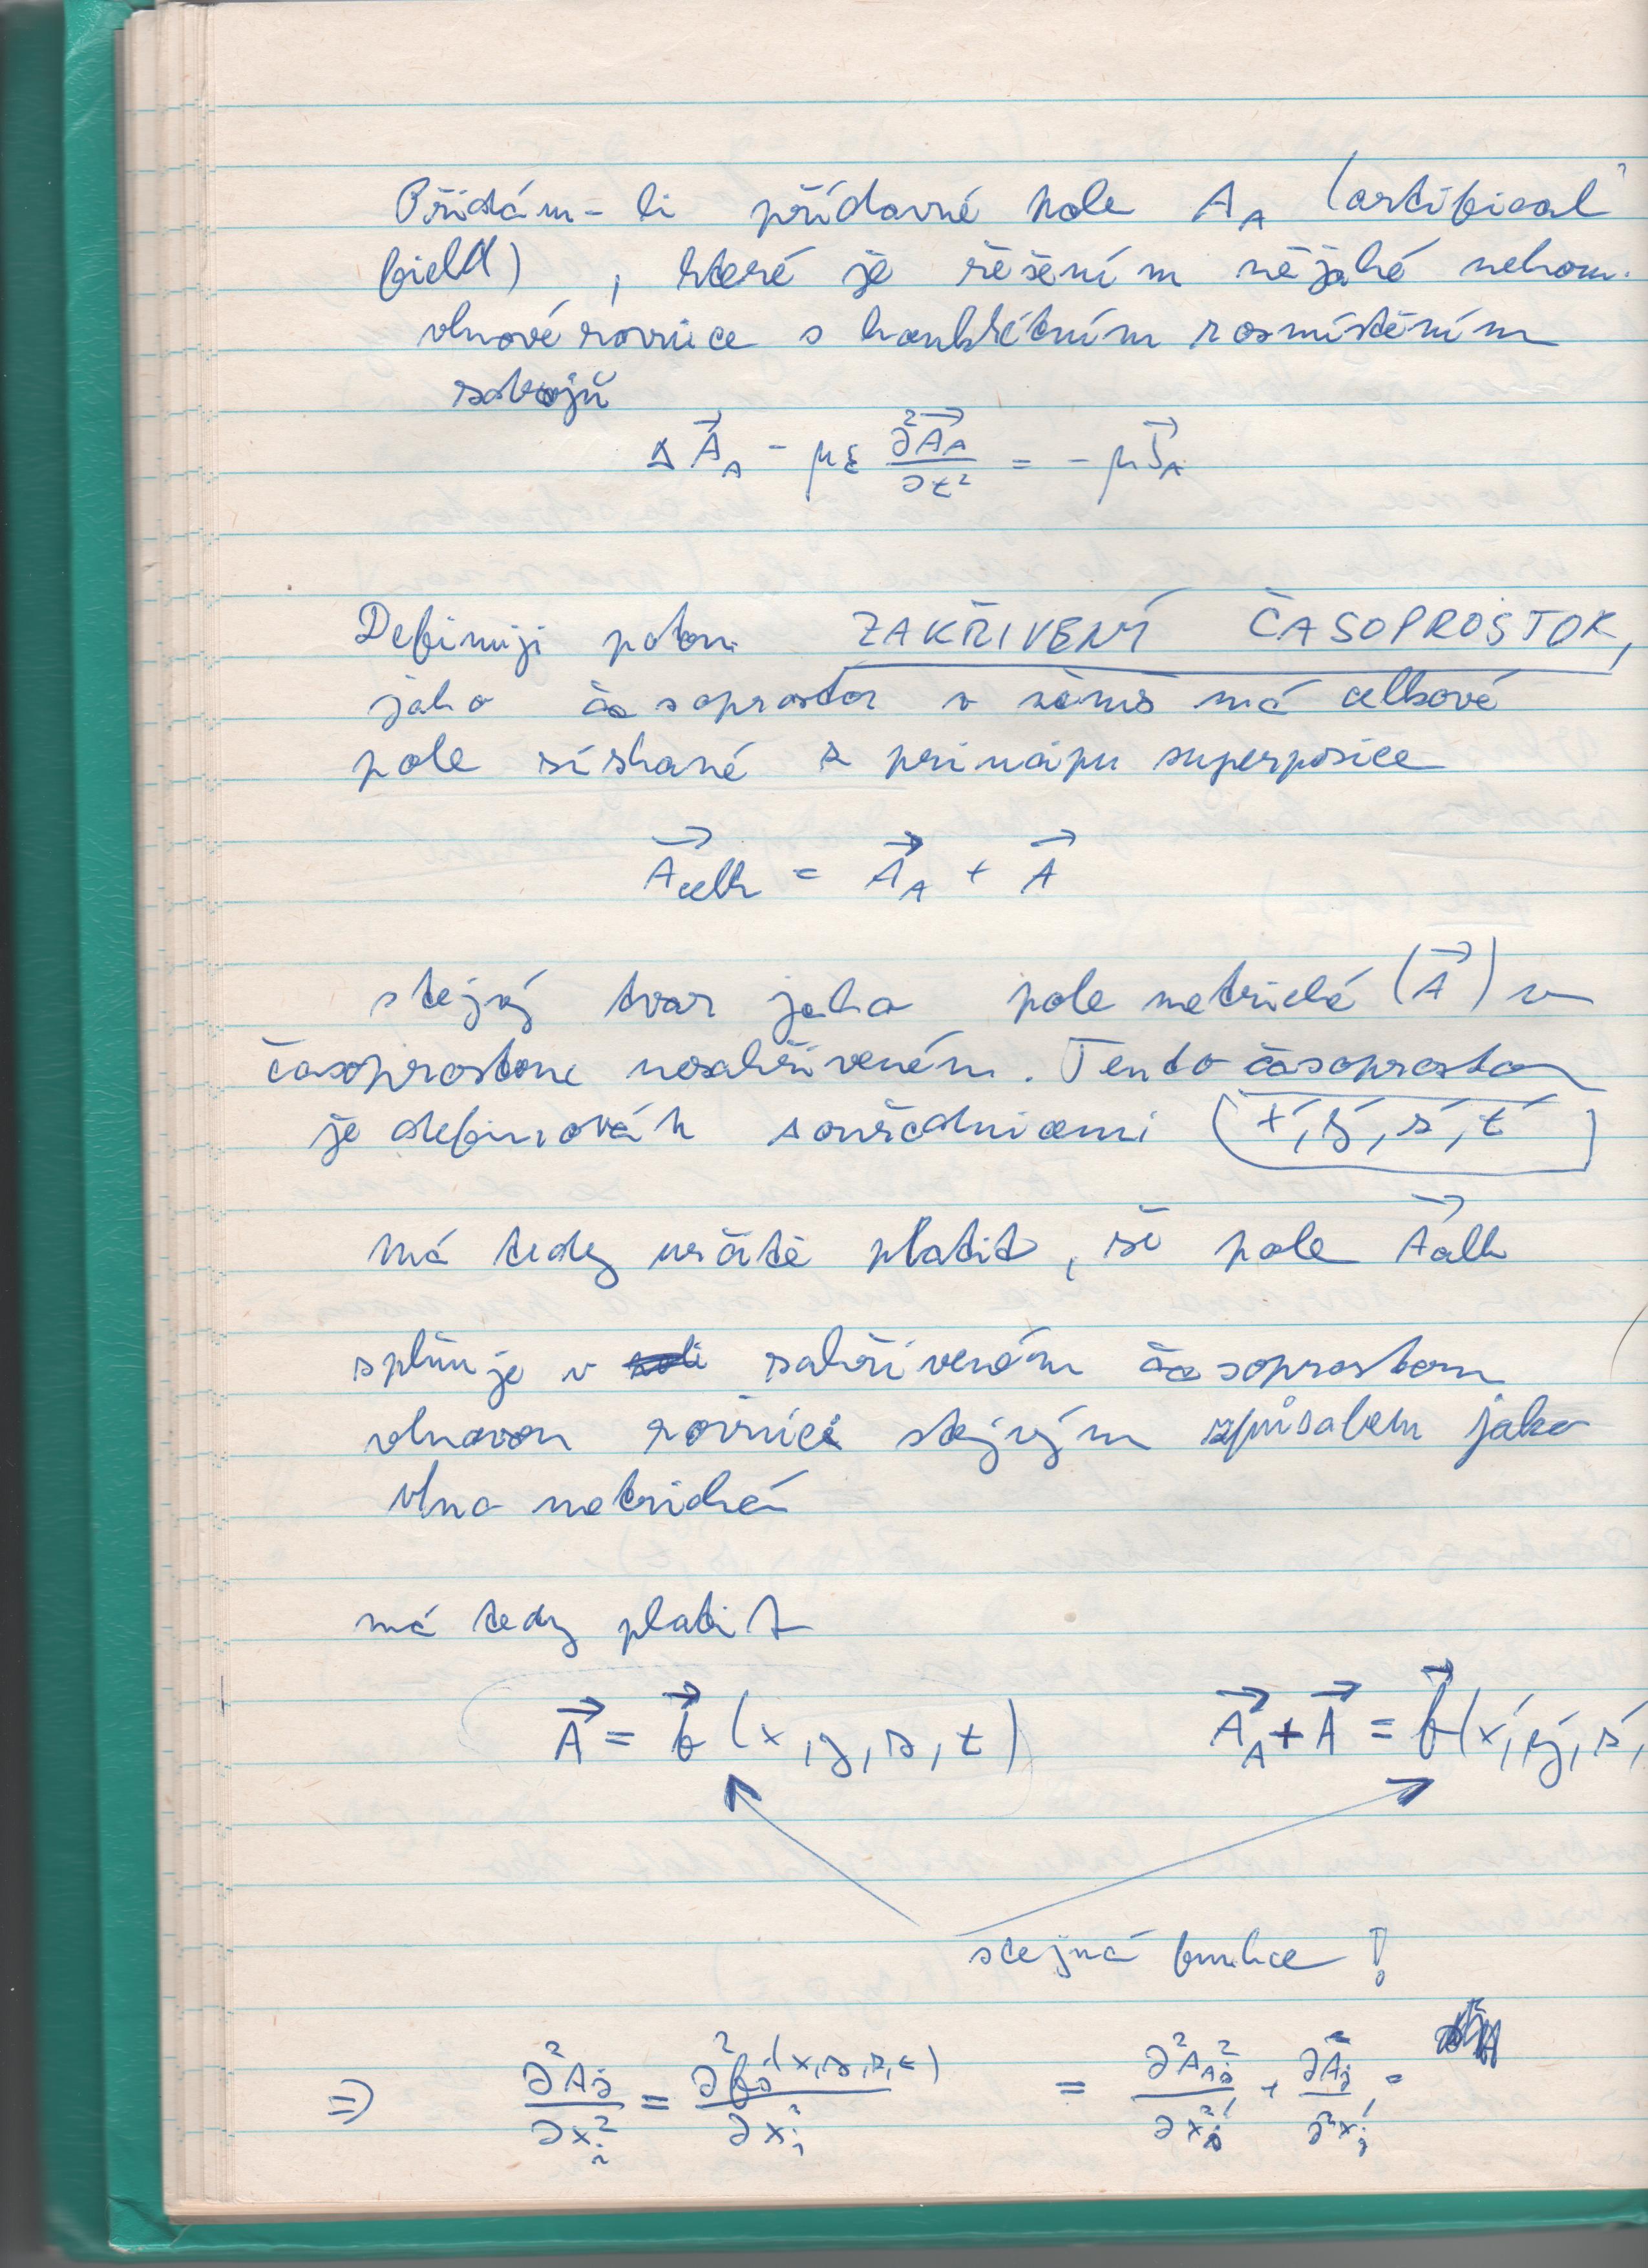 Přidám-li přídavné pole A_A (artifical
field), které je řešením nějaké nehom.
vlnové rovnice s konkrétním rozmístěním
zdrojů
Δ A⃗_A - με ∂²A⃗_A/∂t² = -μJ⃗_A
Definuji potom ZAKŘIVENÝ ČASOPROSTOR,
jako časoprostor v němž má celkové
pole získané z principu superpozice
A⃗celk = A⃗_A + A⃗
stejný tvar jako pole metrické (A⃗) v
časoprostoru nezakřiveném. Tento časoprostor
je definován souřadnicemi (x′, y′, z′, t′)
má tedy určitě platit, že pole A⃗celk
splňuje v zakřiveném časoprostoru
vlnovou rovnici stejným způsobem jako
vlna metrická
má tedy platit
A⃗ = f⃗ (x, y, z, t) A⃗_A + A⃗ = f⃗(x′, y′, z′,
stejná funkce!
⇒ ∂²A_j/∂x_i² = ∂²f_j(x,y,z,t)/∂x_i² = ∂²A_Aj/∂x_j²′ + ∂²A_j/∂²x_j′ =